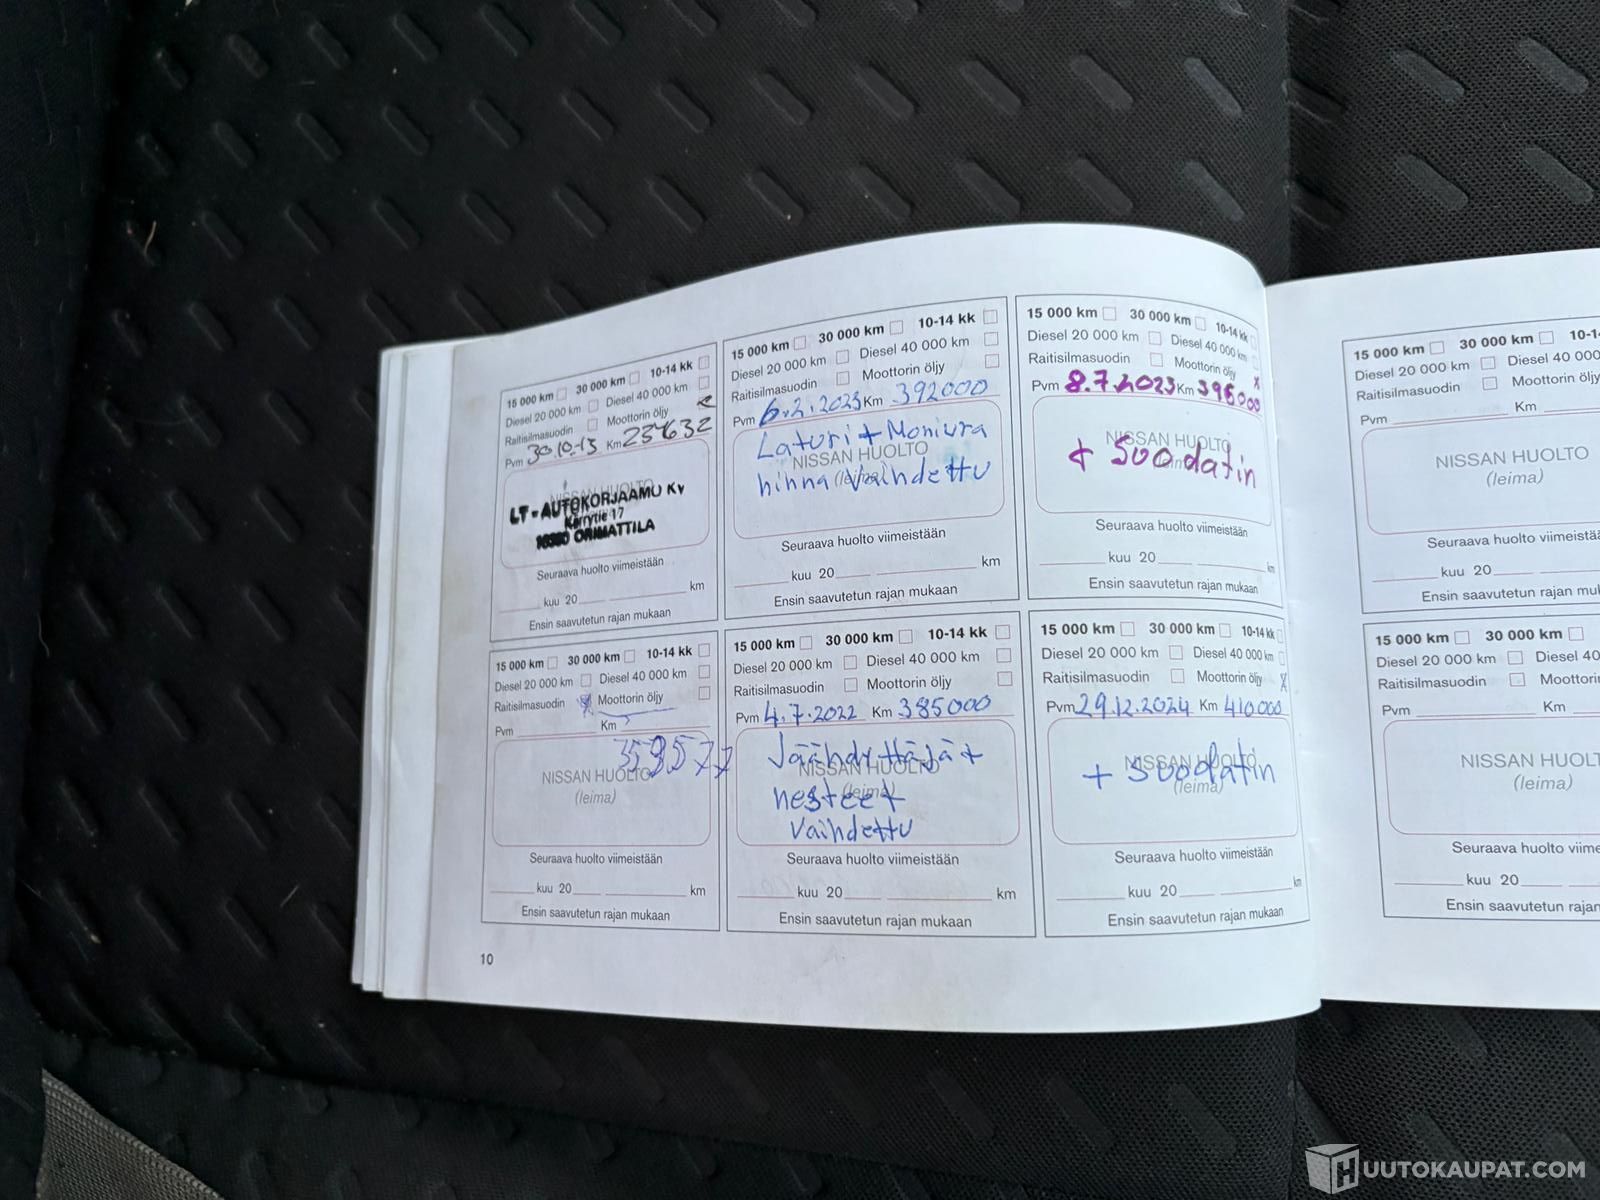 15 000 km 30 000 km 10-14 kk
Diesel 20 000 km Diesel 40 000 km
Raitisilmasuodin Moottorin öljy
Pvm 30.10.-13 Km 234632
NISSAN HUOLTO
LT-AUTOKORJAAMO Ky
Kärrytie 17
16300 ORIMATTILA
Seuraava huolto viimeistään
kuu 20 km
Ensin saavutetun rajan mukaan
15 000 km 30 000 km 10-14 kk
Diesel 20 000 km Diesel 40 000 km
Raitisilmasuodin Moottorin öljy
Pvm 6.2.2023 Km 392000
Laturi + Moniura
NISSAN HUOLTO
hihna Vaihdettu
(leima)
Seuraava huolto viimeistään
kuu 20 km
Ensin saavutetun rajan mukaan
15 000 km 30 000 km 10-14 kk
Diesel 20 000 km Diesel 40 000 km
Raitisilmasuodin Moottorin öljy x
Pvm 8.7.2023 Km 396000
NISSAN HUOLTO
+ Suodatin
Seuraava huolto viimeistään
kuu 20 km
Ensin saavutetun rajan mukaan
15 000 km 30 000 km 10-14 kk
Diesel 20 000 km Diesel 40 000 km
Raitisilmasuodin Moottorin öljy
Pvm Km
359577
NISSAN HUOLTO
(leima)
Seuraava huolto viimeistään
kuu 20 km
Ensin saavutetun rajan mukaan
15 000 km 30 000 km 10-14 kk
Diesel 20 000 km Diesel 40 000 km
Raitisilmasuodin Moottorin öljy
Pvm 4.7.2022 Km 385000
Jäähdyttäjä +
NISSAN HUOLTO
nesteet
(leima)
Vaihdettu
Seuraava huolto viimeistään
kuu 20 km
Ensin saavutetun rajan mukaan
15 000 km 30 000 km 10-14 kk
Diesel 20 000 km Diesel 40 000 km
Raitisilmasuodin Moottorin öljy x
Pvm 29.12.2024 Km 410000
NISSAN HUOLTO
+ Suodatin
(leima)
Seuraava huolto viimeistään
kuu 20 km
Ensin saavutetun rajan mukaan
10
15 000 km 30 000 km 10-1
Diesel 20 000 km Diesel 40 000
Raitisilmasuodin Moottorin
Pvm Km
NISSAN HUOLTO
(leima)
Seuraava huolto viimeistää
kuu 20
Ensin saavutetun rajan mu
15 000 km 30 000 km
Diesel 20 000 km Diesel 40
Raitisilmasuodin Moottorin
Pvm Km
NISSAN HUOLT
(leima)
Seuraava huolto viime
kuu 20
Ensin saavutetun rajan
HUUTOKAUPAT.COM